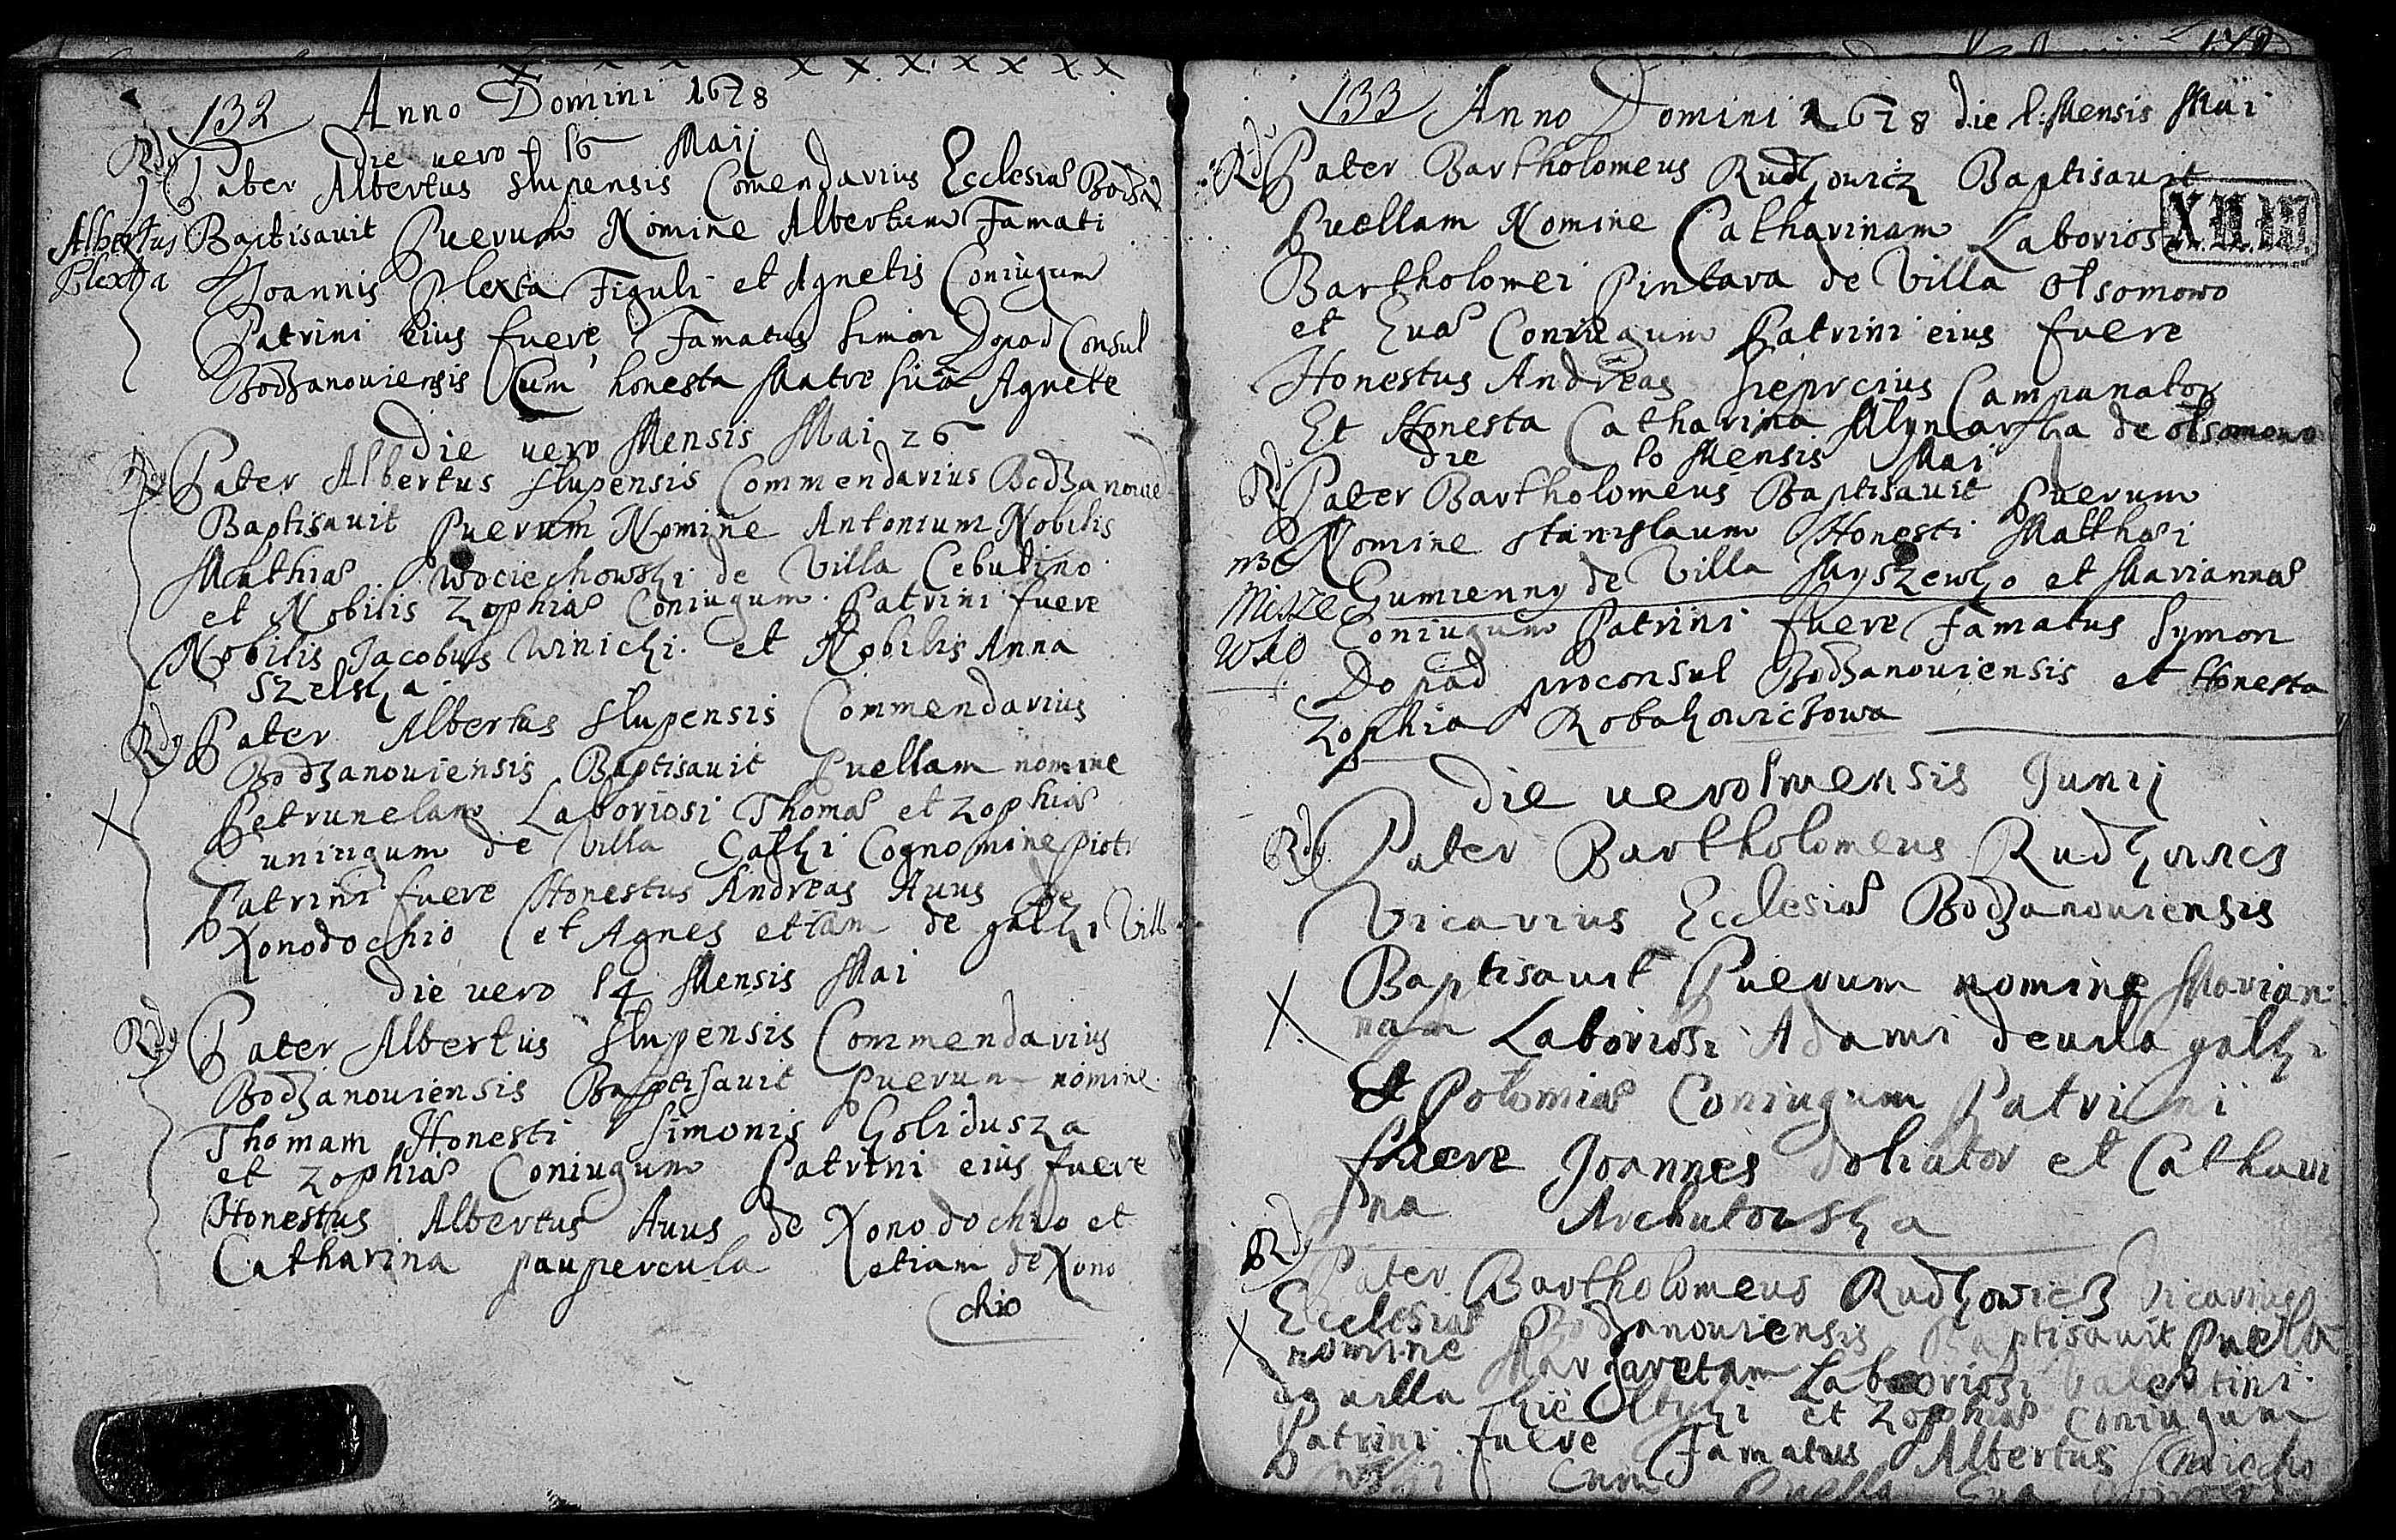 132 Anno Domini 1678
die vero 16 Maij
Rdg Pater Albertus Slupensis Comendarius Ecclesiae Bodza
Albertus Plexta
Baptisavit Puerum Nomine Albertum Famati
Joannis Plexta Figuli et Agnetis Coniugum
Patrini eius fuere Famatus Simon Dopad Consul
Bodzanoviensis Cum honesta Matre sua Agnete
die vero Mensis Mai 26
Pater Albertus Slupensis Commendarius Bodzanovie
Baptisavit Puerum Nomine Antonium Nobilis
Mathiae Wociechowski de Villa Cebulino
et Nobilis Zophiae Coniugum Patrini fuere
Nobilis Jacobus Winicki et Nobilis Anna
Szelska
Rdg Pater Albertus Slupensis Commendarius
Bodzanoviensis Baptisavit Puellam nomine
X Petrunelam Laboriosi Thomae et Zophiae
Cuniugum de Villa Galki Cognomine Piotr
Patrini fuere Honestus Andreas Avus de
Xonodochio et Agnes etiam de galki Vill
die vero 14 Mensis Mai
Rdg Pater Albertus Slupensis Commendarius
Bodzanoviensis Baptisavit Puerum nomine
Thomam Honesti Simonis Golidusza
et Zophiae Coniugum Patrini eius fuere
Honestus Albertus Avus de Xonodochio et
Catharina paupercula etiam de Xono
chio
133 Anno Domini 1678 die 1 Mensis Mai
Rdg Pater Bartholomeus Rudkowicz Baptisavit
Puellam Nomine Catharinam Laboriosi
X.II.
Bartholomei Pintara de Villa Osomowo
et Evae Coniugum Patrini eius fuere
Honestus Andreas Campanator
Et Honesta Catharina Mlynarka de
die 10 Mensis Mai
Rd Pater Bartholomeus Baptisavit Puerum
Nomine Stanislaum Honesti Matthaei
Misze wko
Gumienny de Villa Myszewko et Mariannae
Coniugum Patrini fuere Famatus Symon
Dopad proconsul Bodzanoviensis et Honesta
Zophia Robakowiczowa
die vero 1 mensis Junij
Rdg Pater Bartholomeus Rudkowicz
Vicarius Ecclesiae Bodzanoviensis
X Baptisavit Puerum nomine Marian
nam Laboriosi Adami de vila galki
Et Polomiae Coniugum Patrini
fuere Joannes doliator et Cathari
na Archutowska
Rdg Pater Bartholomeus Rudkowicz Vicarius
X Ecclesiae Bodzanoviensis Baptisavit Puella
nomine Margaretam Laboriosi Valentini
de villa et Zophiae Coniugum
Patrini fuere Famatus Albertus
Cum Puella Eva